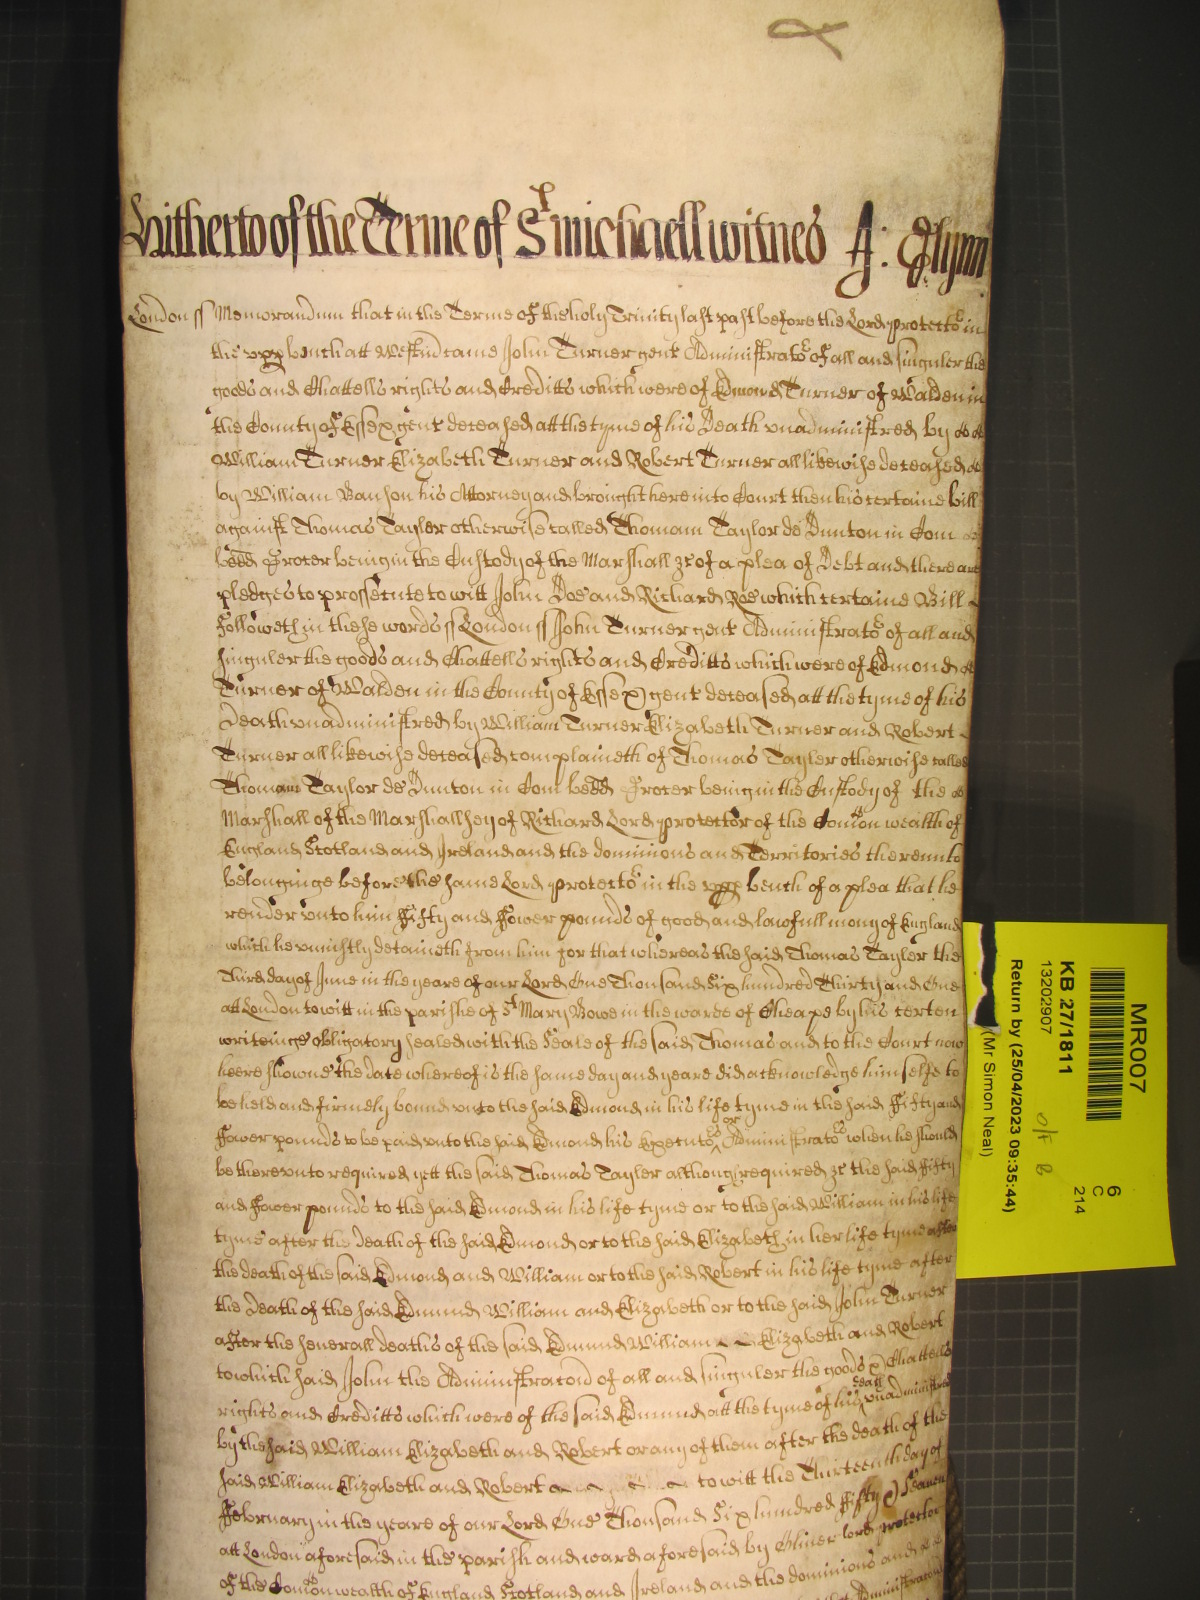 Hitherto of the Terme of St michaell witnes J: Glynn
London ss Memorandum that in the Terme of the holy Trinity last past before the Lord protector in
the upp bench att Westmr came John Turner gent Administrator of all and singuler the
goods and Chattells rights and Creditts which were of Edmond Turner of Walden in
the County of Essex gent deceased att the tyme of his Death unadministred by
William Turner Elizabeth Turner and Robert Turner all likewise deceased
by William his Attorney and brought here into Court then his certaine bill
against Thomas Tayler otherwise called Thomam Taylor de Dunton in Com
bedd Proter being in the Custody of the Marshall &c of a plea of Debt and there are
pledges to prossecute to witt John Doe and Richard Roe which certaine Bill
Followeth in these words ss London ss John Turner gent Administrator of all and
singuler the goods and Chattells rights and Creditts which were of Edmond
Turner of Walden in the County of Essex gent deceased att the tyme of his
death unadministred by William Turner Elizabeth Turner and Robert
Turner all likewise deceased complaineth of Thomas Tayler otherwise called
Thomam Taylor de Dunton in Com bedd Proter being in the Custody of the
Marshall of the Marshallsey of Richard Lord protector of the Comon wealth of
England Scotland and Ireland and the dominions and Territories thereunto
belonginge before the same Lord protector in the upp bench of a plea that he
render unto him fifty and fower pounds of good and lawfull mony of England
which he uniustly detaineth from him for that whereas the said Thomas Tayler the
Third day of June in the yeare of our Lord One Thousand Six hundred Thirty and One
att London to witt in the parishe of St Mary Bowe in the warde of Cheape by his certen
writeinge obligatory sealed with the Seale of the said Thomas and to the Court now
heere showne the date whereof is the same day and yeare did acknowledge himselfe to
be held and firmely bound unto the said Edmond in his life tyme in the said fifty and
fower pounds to be paid unto the said Edmond his Executors or Administrators when he should
be thereunto required yett the said Thomas Tayler although required &c the said fifty
and fower pounds to the said Edmond in his life tyme or to the said William in his life
tyme after the death of the said Edmond or to the said Elizabeth in her life tyme after
the death of the said Edmond and William or to the said Robert in his life tyme after
the death of the said Edmund William and Elizabeth or to the said John Turner
after the severall deaths of the said Edmund William Elizabeth and Robert
to which said John the Administracion of all and singuler the goods Chattells
rights and Creditts which were of the said Edmund att the tyme of his death unadministred
by the said William Elizabeth and Robert or any of them after the death of the
said William Elizabeth and Robert to witt the Thirteenth day of
February in the yeare of our Lord One Thousand Six hundred fifty Seaven
att London aforesaid in the parish and ward aforesaid by Oliver lord protector
of the Comonwealth of England Scotland and Ireland and the dominions and
MR007
KB 27/1811
13202907
Return by (25/04/2023 09:35:44)
(Mr Simon Neal)
6
C
214